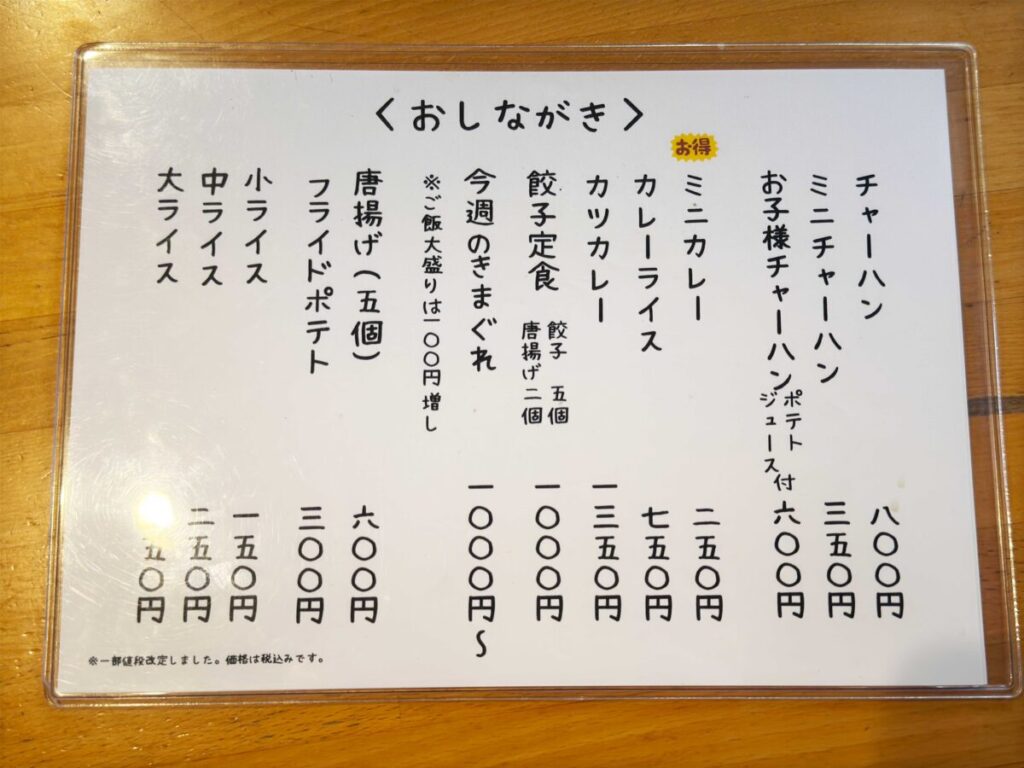 〈おしながき〉
チャーハン 八〇〇円
ミニチャーハン 三五〇円
お子様チャーハン ポテト ジュース 付 六〇〇円
お得
ミニカレー 二五〇円
カレーライス 七五〇円
カツカレー 一三五〇円
餃子定食 餃子 五個 唐揚げ二個 一〇〇〇円
今週のきまぐれ 一〇〇〇円〜
※ご飯大盛りは一〇〇円増し
唐揚げ(五個) 六〇〇円
フライドポテト 三〇〇円
小ライス 一五〇円
中ライス 二五〇円
大ライス 五〇円
※一部値段改定しました。価格は税込みです。